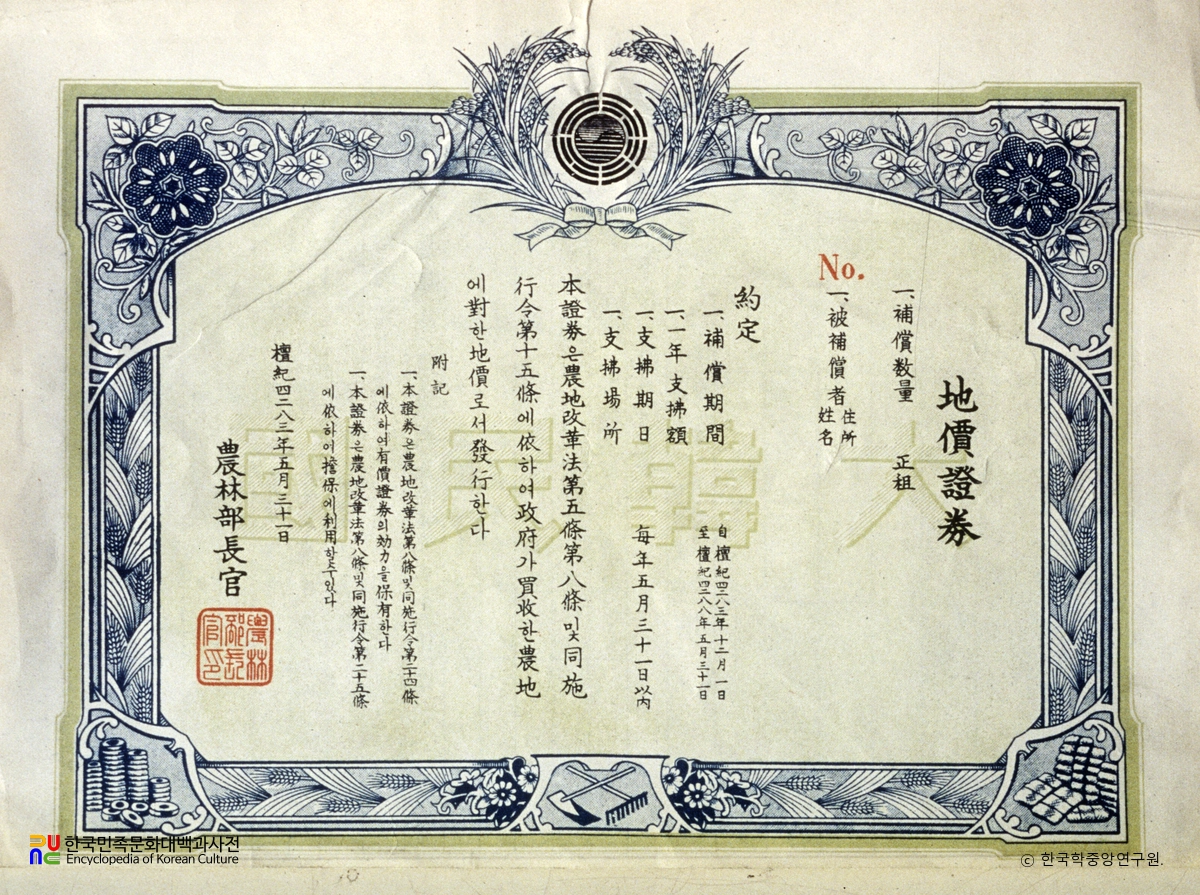 地價證券
一、補償数量 正租
No.
一、被補償者 住所 姓名
約定
一、補償期間 自檀紀四二八三年十二月一日 至檀紀四二八八年五月三十一日
一、一年支拂額
一、支拂期日 每年五月三十一日以內
一、支拂場所
本證券은農地改革法第五條第八條및同施
行令第十五條에依하여政府가買收한農地
에對한地價로서發行한다
附記
一、本證券은農地改革法第八條및同施行令第二十四條
에依하여有價證券의効力을保有한다
一、本證券은農地改革法第八條및同施行令第二十五條
에依하여擔保에利用할수있다
檀紀四二八三年五月三十一日
農林部長官
農林部長官印
大韓民國
한국민족문화대백과사전
Encyclopedia of Korean Culture
ⓒ 한국학중앙연구원.